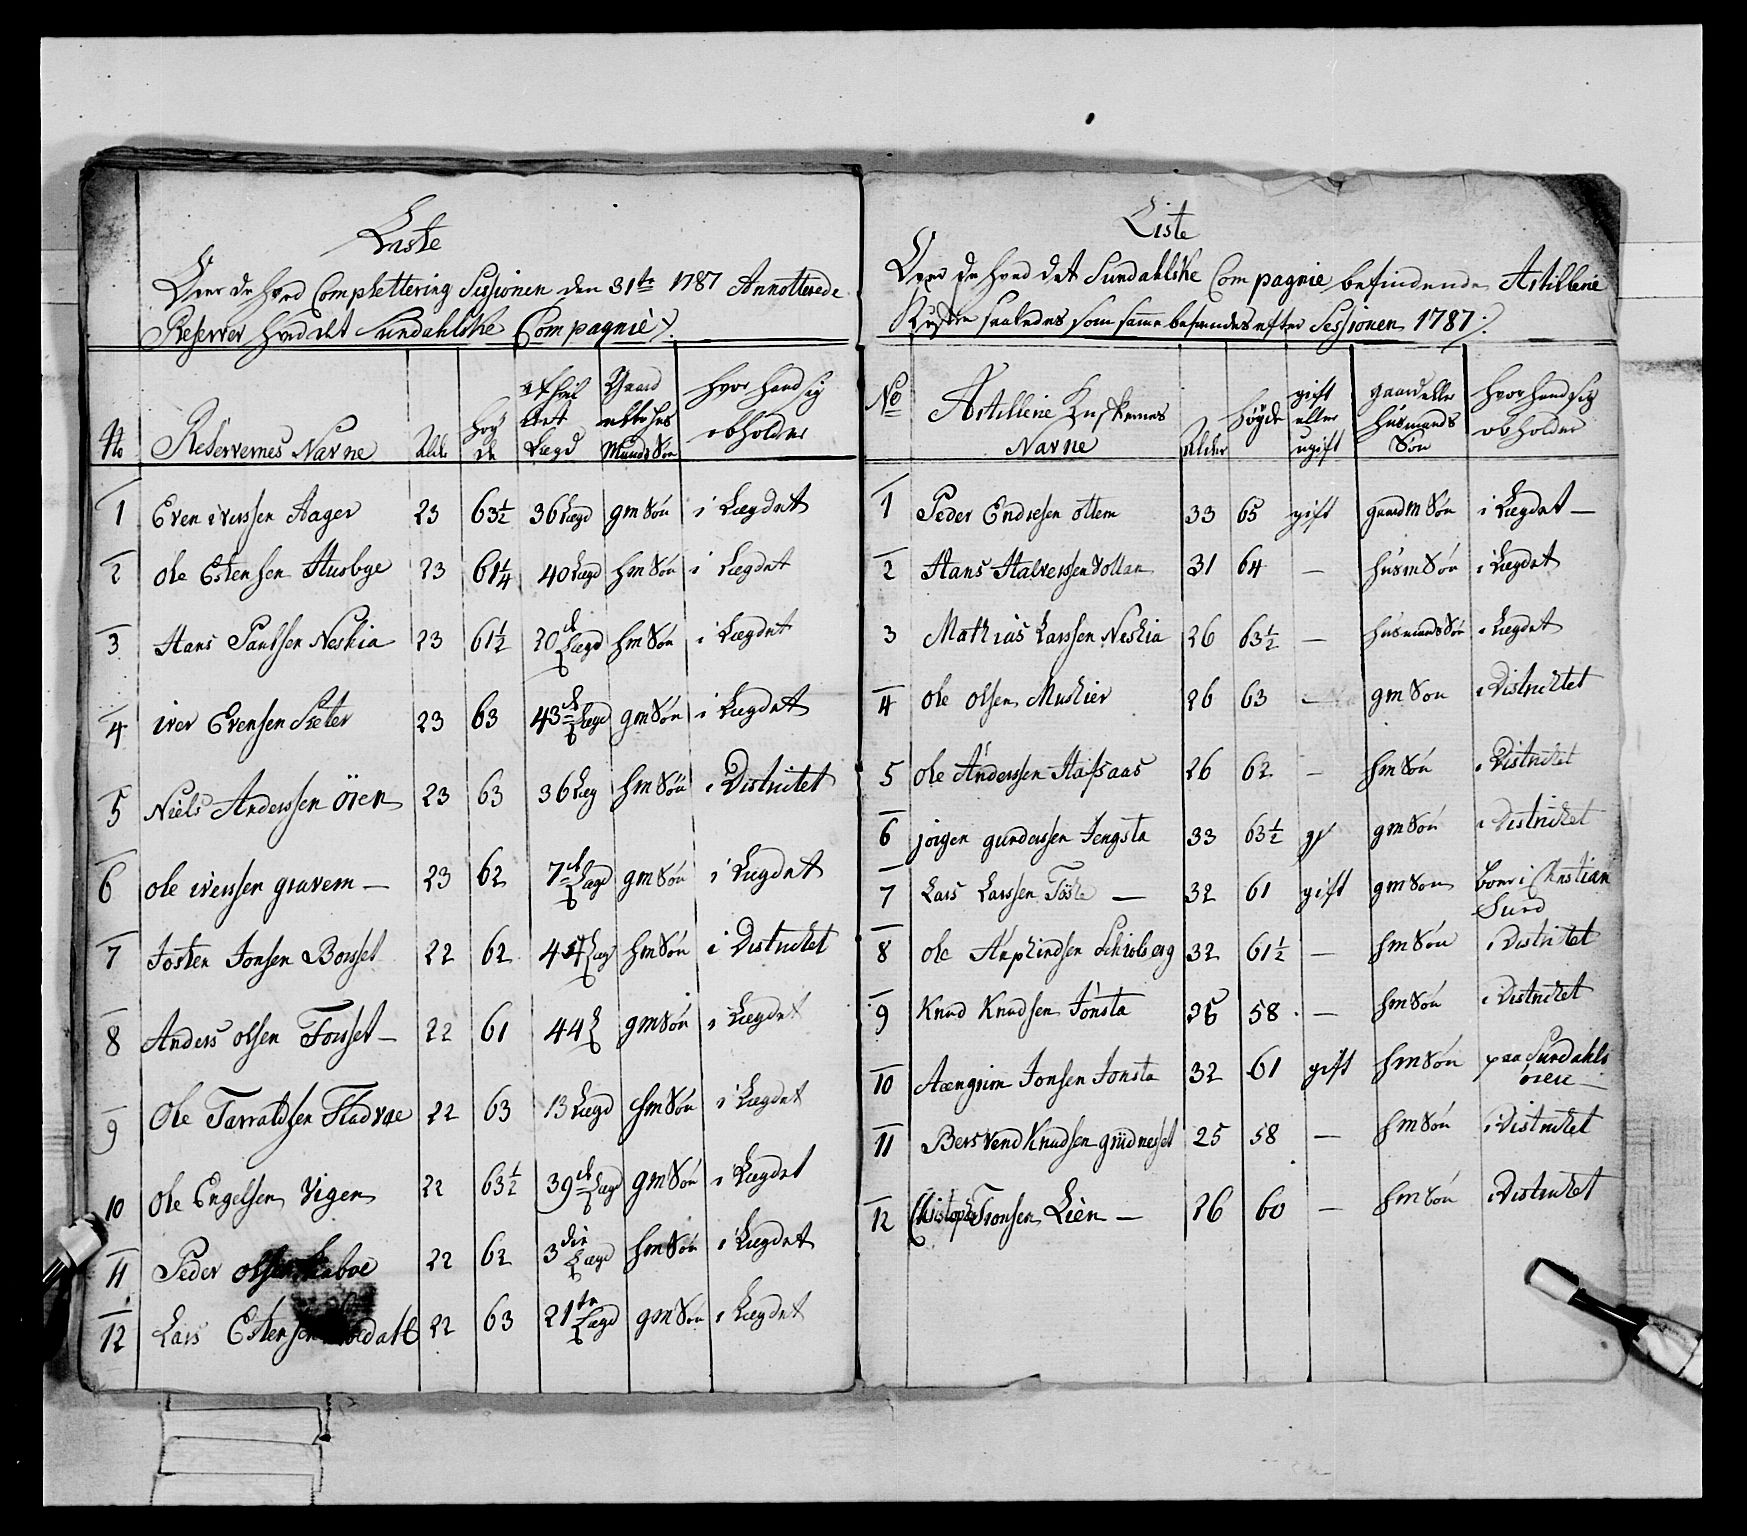 Liste
Over de hved Complettering Sessionen den 31te 1787 Annotterede
Reserver hved det Sundahlske Compagnie
No | Reservernes Navne | Alder | Høyde | Lægd | Gaard eller Huusmands Søn | hvor hand sig opholder
1 Even iverssen Hager 23 63½ 36 Lægd gmSøn i Lægdet
2 Ole Estensen Husbye 23 61¼ 40 Lægd hmSøn i Lægdet
3 Hans Paulsen Neskia 23 61½ 20de Lægd hmSøn i Lægdet
4 iver Evensen Sæter 23 63 43de Lægd gmSøn i Lægdet
5 Niels Anderssen öien 23 63 36 Læg hmSøn i Districtet
6 Ole iverssen gravem — 23 62 7de Lægd gmSøn i Lægdet
7 Josten Jonsen Borsset 22 62 Læg hmSøn i Districktet
8 Anders olsen Forsset — 22 61 44 L gmSøn i Lægdet
9 Ole Tarraldsen Fladvae 22 63 13 Lægd hmSøn i Lægdet
10 Ole Engelsen Vigen 22 63½ 39de Lægd gmSøn i Lægdet
11 Peder olsen 22 62 3die Lægd hmSøn i Lægdet
12 Lars Estensen 22 63 21te Lægd gmSøn i Lægdet
Liste
Over de hved det Sundahlske Compagnie befindende Artillerie
Kuske saaledes som samme befandtes efter Sessionen 1787
No | Artillerie Kuskernes Navne | Alder | høyde | gift eller ugift | gaard eller huusmands Søn | hvor hand sig opholder
1 Peder Endresen ottem 33 65 gift gaardmSøn i Lægdet —
2 Hans Halverssen Vollan 31 64 — husmSøn i Lægdet
3 Mathias Larssen Neskia 26 63½ — husmandsSøn i Lægdet
4 Ole olsen Muskier 26 63 — gmSøn i Districktet
5 Ole Anderssen Hafsaas 26 62 — hmSøn i Districktet
6 jörgen gunderssen Jengsta 33 63½ gmSøn i Districktet
7 Lars Larssen — 32 61 gift gmSøn boer i Christian
Sund
8 Ole 32 61½ — hmSøn i Districtet
9 Knud Knudsen Jonsta 58 — hmSøn i Districktet
10 Aengrim Jonsen Jonsta 32 61 gift hmSøn paa Sundahls
öien —
11 Bersvend Knudsen grüdnesset 25 58 — hmSøn i Districktet
12 Christopher Tronsen Lien — 26 60 — hmSøn i Districktet